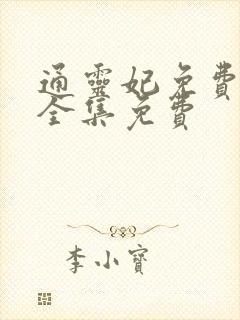 通靈妃免費
全集免費
李小寶